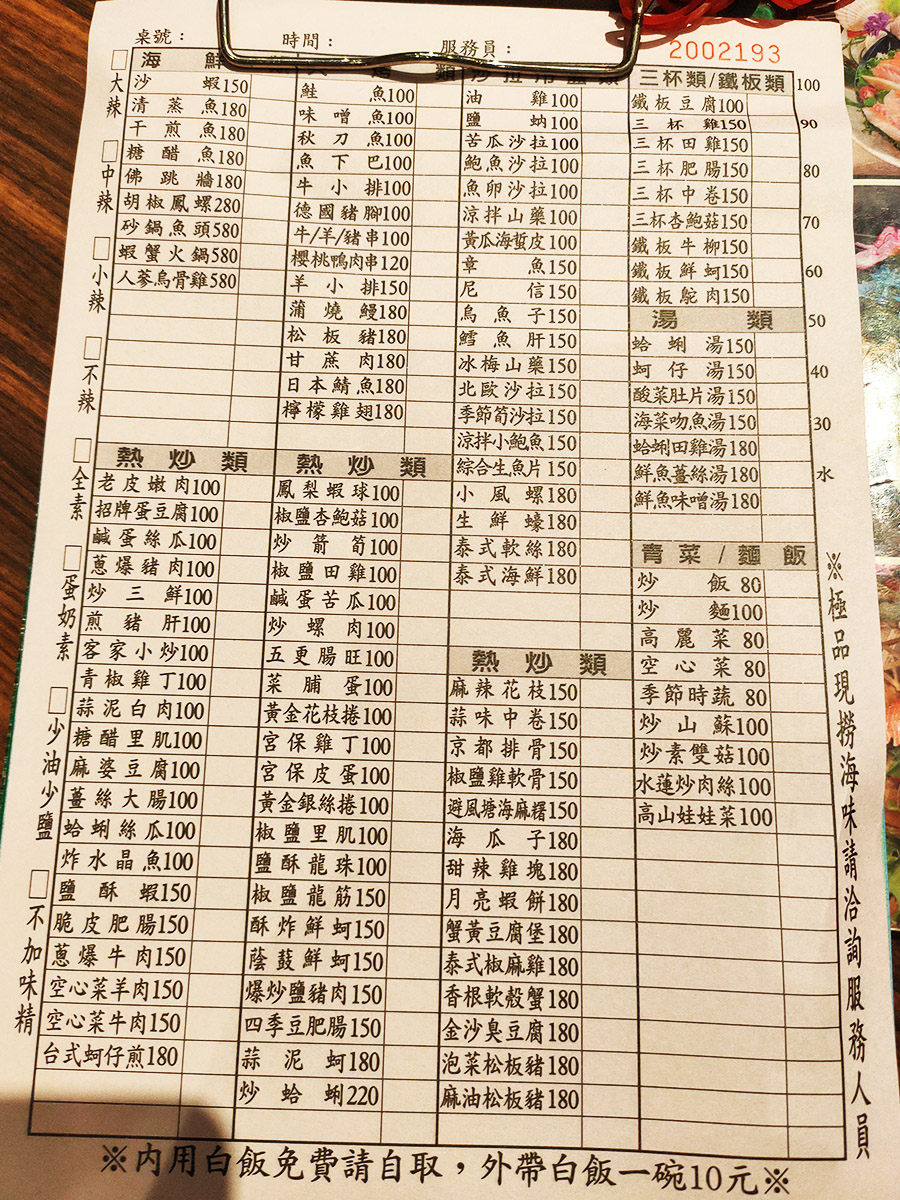 桌號：
時間：
服務員：
2002193
大辣
中辣
小辣
不辣
全素
蛋奶素
少油少鹽
不加味精
海鮮
沙蝦150
清蒸魚180
干煎魚180
糖醋魚180
佛跳牆180
胡椒鳳螺280
砂鍋魚頭580
蝦蟹火鍋580
人蔘烏骨雞580
熱炒類
老皮嫩肉100
招牌蛋豆腐100
鹹蛋絲瓜100
蔥爆豬肉100
炒三鮮100
煎豬肝100
客家小炒100
青椒雞丁100
蒜泥白肉100
糖醋里肌100
麻婆豆腐100
薑絲大腸100
蛤蜊絲瓜100
炸水晶魚100
鹽酥蝦150
脆皮肥腸150
蔥爆牛肉150
空心菜羊肉150
空心菜牛肉150
台式蚵仔煎180
類
鮭魚100
味噌魚100
秋刀魚100
魚下巴100
牛小排100
德國豬腳100
牛/羊/豬串100
櫻桃鴨肉串120
羊小排150
蒲燒鰻180
松板豬180
甘蔗肉180
日本鯖魚180
檸檬雞翅180
熱炒類
鳳梨蝦球100
椒鹽杏鮑菇100
炒箭筍100
椒鹽田雞100
鹹蛋苦瓜100
炒螺肉100
五更腸旺100
菜脯蛋100
黃金花枝捲100
宮保雞丁100
宮保皮蛋100
黃金銀絲捲100
椒鹽里肌100
鹽酥龍珠100
椒鹽龍筋150
酥炸鮮蚵150
蔭鼓鮮蚵150
爆炒鹽豬肉150
四季豆肥腸150
蒜泥蚵180
炒蛤蜊220
油雞100
鹽蚋100
苦瓜沙拉100
鮑魚沙拉100
魚卵沙拉100
涼拌山藥100
黃瓜海蜇皮100
章魚150
尼信150
烏魚子150
鱈魚肝150
冰梅山藥150
北歐沙拉150
季節筍沙拉150
涼拌小鮑魚150
綜合生魚片150
小風螺180
生鮮蠔180
泰式軟絲180
泰式海鮮180
熱炒類
麻辣花枝150
蒜味中卷150
京都排骨150
椒鹽雞軟骨150
避風塘海麻糬150
海瓜子180
甜辣雞塊180
月亮蝦餅180
蟹黃豆腐堡180
泰式椒麻雞180
香根軟殼蟹180
金沙臭豆腐180
泡菜松板豬180
麻油松板豬180
三杯類/鐵板類
鐵板豆腐100
三杯雞150
三杯田雞150
三杯肥腸150
三杯中卷150
三杯杏鮑菇150
鐵板牛柳150
鐵板鮮蚵150
鐵板鴕肉150
湯類
蛤蜊湯150
蚵仔湯150
酸菜肚片湯150
海菜吻魚湯150
蛤蜊田雞湯180
鮮魚薑絲湯180
鮮魚味噌湯180
青菜/麵飯
炒飯80
炒麵100
高麗菜80
空心菜80
季節時蔬80
炒山蘇100
炒素雙菇100
水蓮炒肉絲100
高山娃娃菜100
100
90
80
70
60
50
40
30
水
※極品現撈海味請洽詢服務人員
※內用白飯免費請自取，外帶白飯一碗10元※